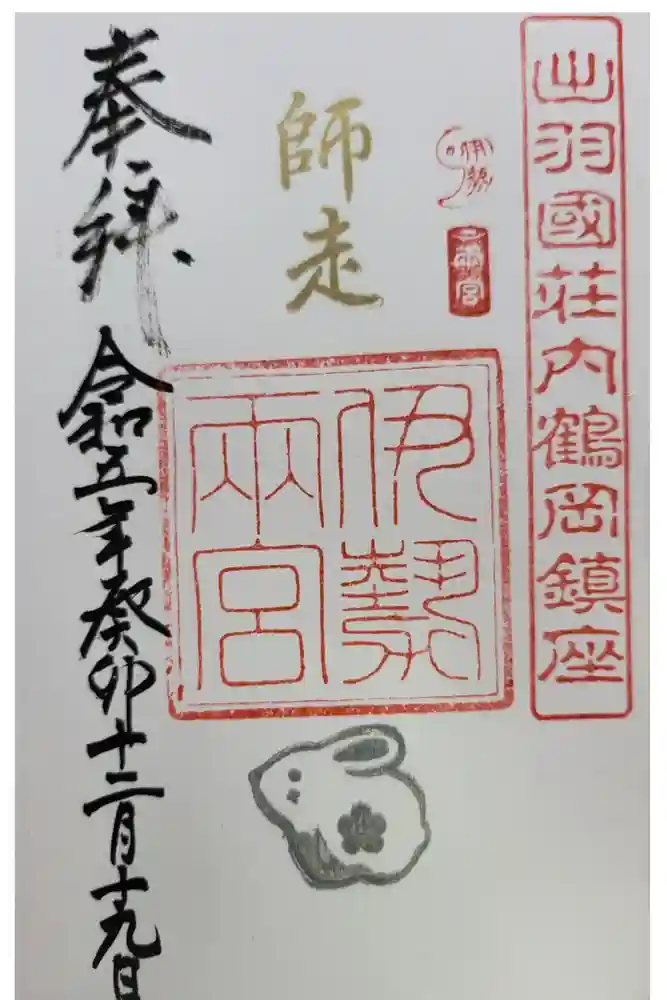 出羽國荘内鶴岡鎮座
伊勢
両宮
伊勢
兩宮
師走
奉拝
令和五年癸卯十二月十九日